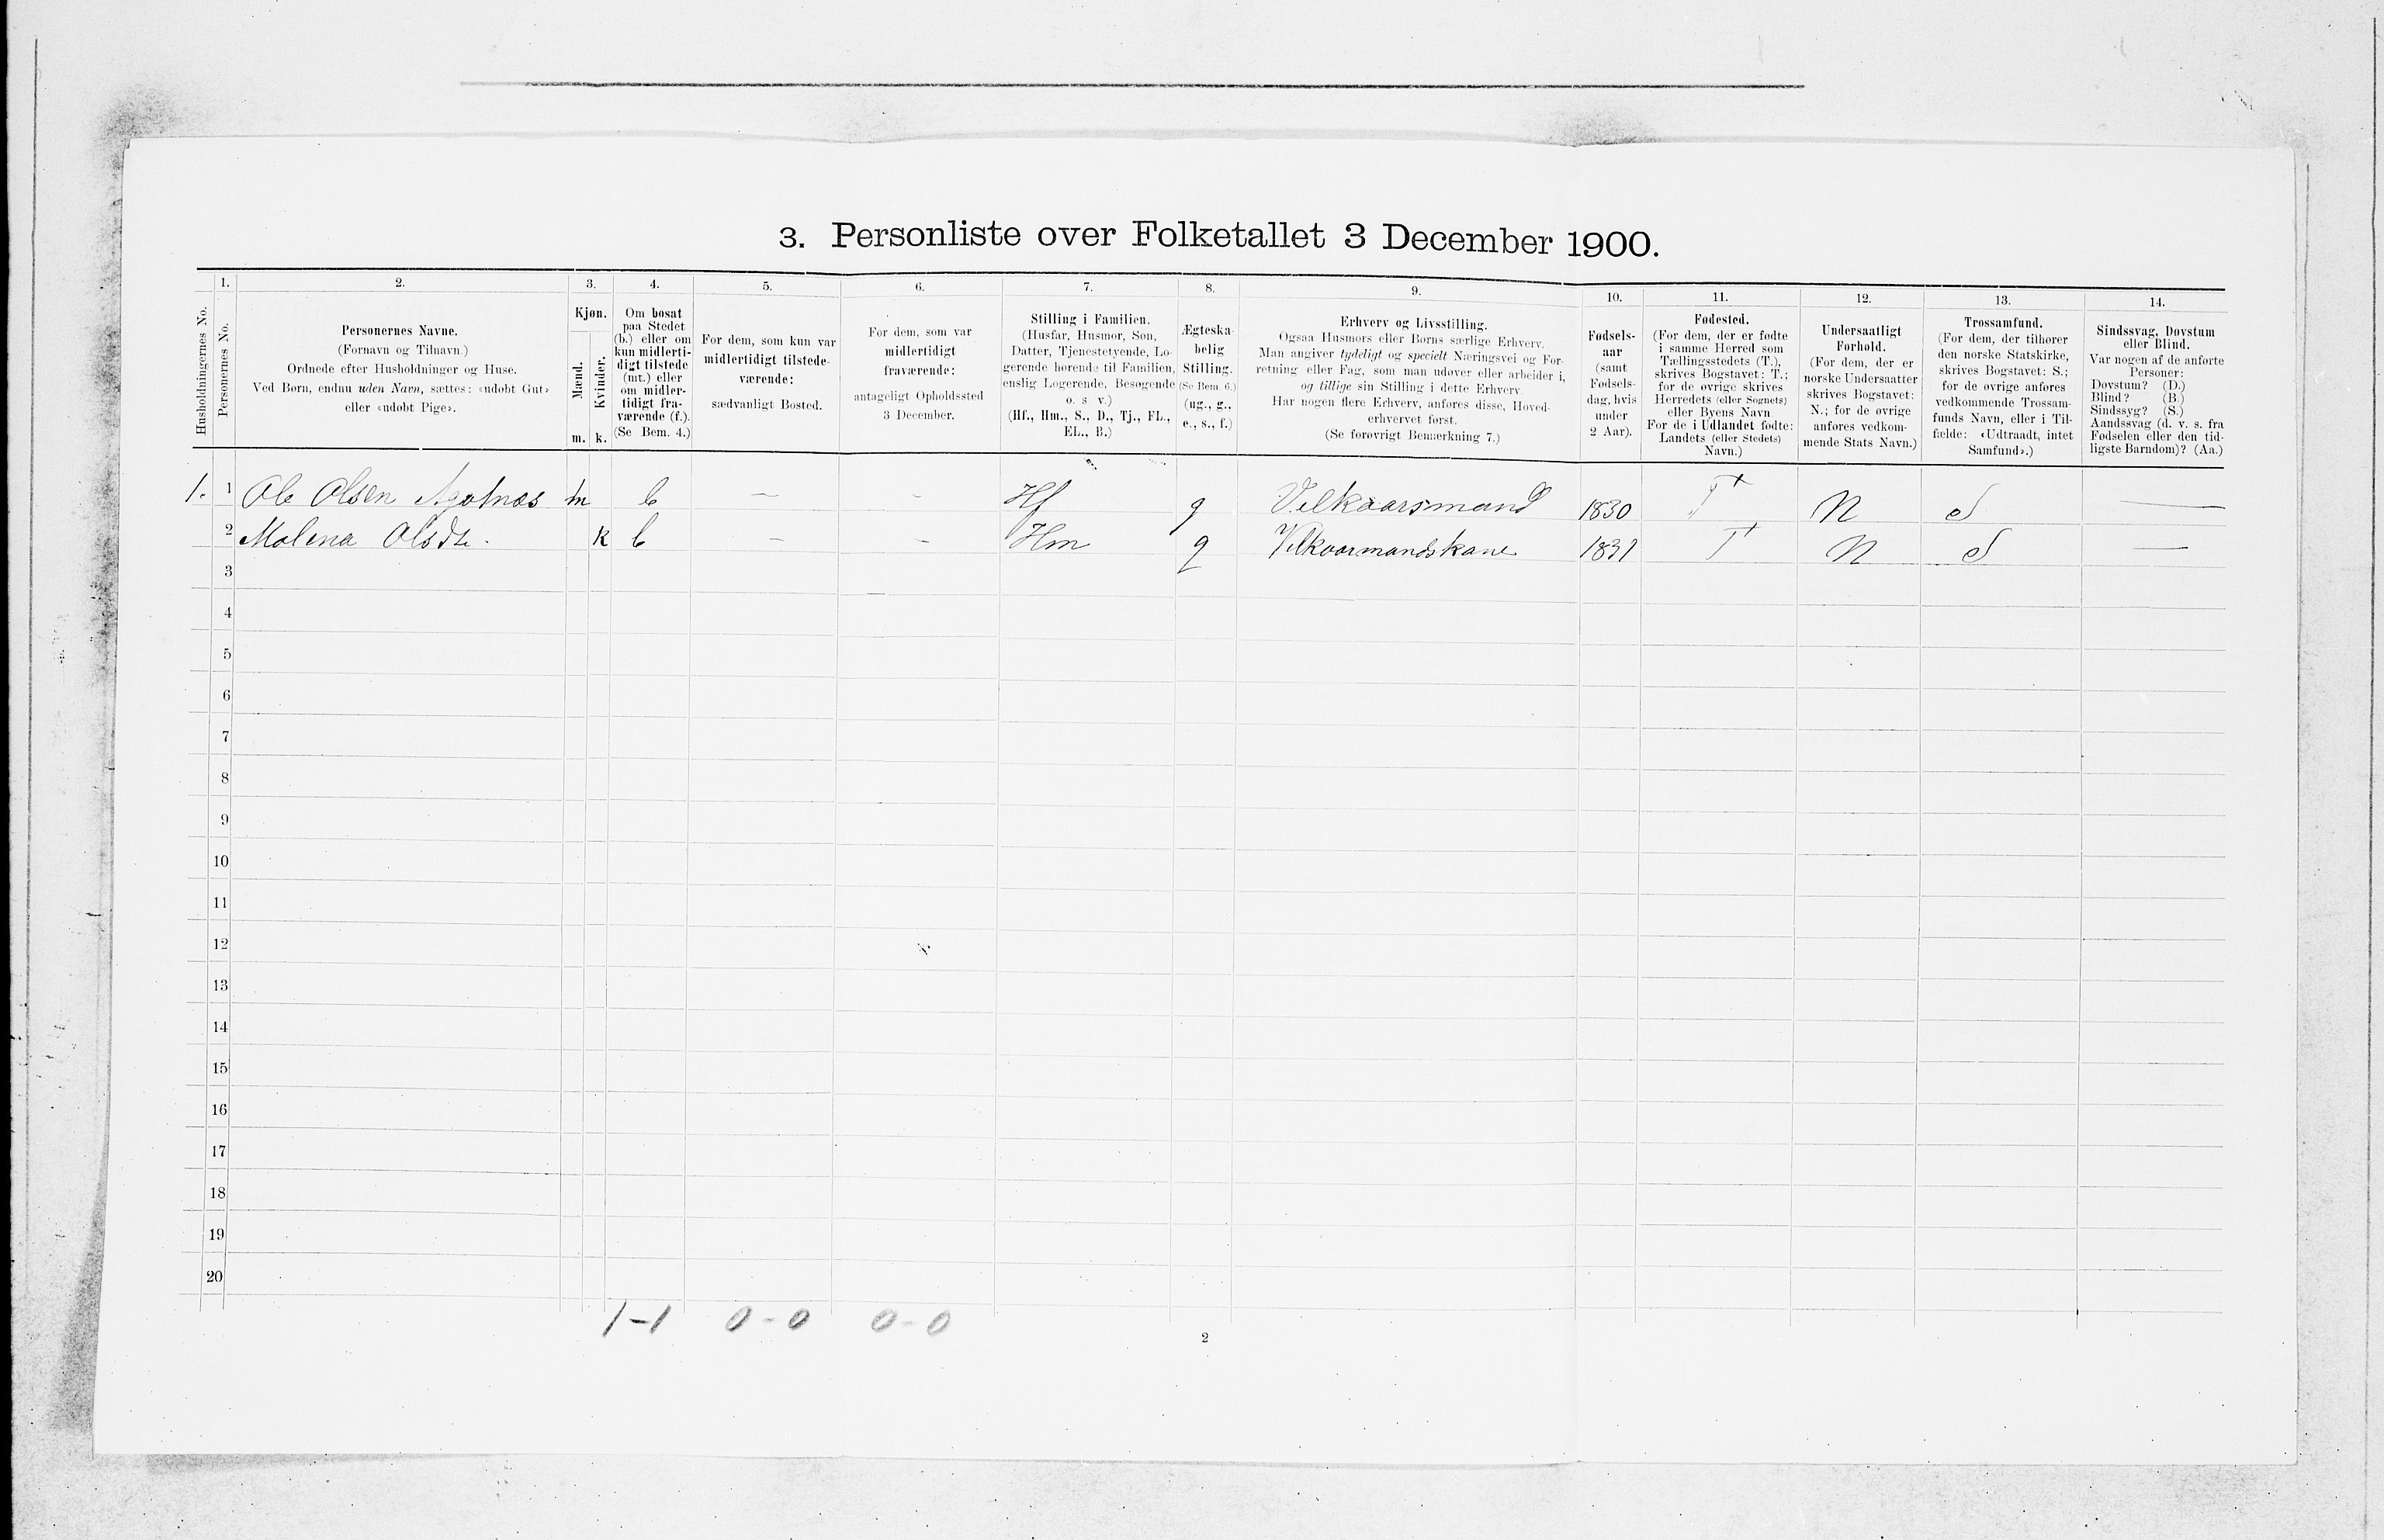 3. Personliste over Folketallet 3 December 1900.
Husholdningernes No.
1.
Personernes No.
2.
Personernes Navne.
(Fornavn og Tilnavn.)
Ordnede efter Husholdninger og Huse.
Ved Børn, endnu uden Navn, sættes: «udøbt Gut»
eller «udøbt Pige».
3.
Kjøn.
Mænd.
Kvinder.
m. k.
4.
Om bosat
paa Stedet
(b.) eller om
kun midlerti-
digt tilstede
(mt.) eller
om midler-
tidigt fra-
værende (f.).
(Se Bem. 4.)
5.
For dem, som kun var
midlertidigt tilstede-
værende:
sædvanligt Bosted.
6.
For dem, som var
midlertidigt
fraværende:
antageligt Opholdssted
3 December.
7.
Stilling i Familien.
(Husfar, Husmor, Søn,
Datter, Tjenestetyende, Lo-
gerende hørende til Familien,
enslig Logerende, Besøgende
o. s v.)
(Hf., Hm., S., D., Tj., FL.,
EL., B.)
8.
Ægteska-
belig
Stilling.
(Se Bem. 6.)
(ug., g.,
e., s., f.)
9.
Erhverv og Livsstilling.
Ogsaa Husmors eller Børns særlige Erhverv.
Man angiver tydeligt og specielt Næringsvei og For-
retning eller Fag, som man udøver eller arbeider i,
og tillige sin Stilling i dette Erhverv.
Har nogen flere Erhverv, anføres disse, Hoved-
erhvervet først.
(Se forøvrigt Bemærkning 7.)
10.
Fødsels-
aar
(samt
Fødsels-
dag, hvis
under
2 Aar).
11.
Fødested.
(For dem, der er fødte
i samme Herred som
Tællingsstedets (T.),
skrives Bogstavet: T.;
for de øvrige skrives
Herredets (eller Sognets)
eller Byens Navn
For de i Udlandet fødte:
Landets (eller Stedets)
Navn.)
12.
Undersaatligt
Forhold.
(For dem, der er
norske Undersaatter
skrives Bogstavet:
N.; for de øvrige
anføres vedkom-
mende Stats Navn.)
13.
Trossamfund.
(For dem, der tilhører
den norske Statskirke,
skrives Bogstavet: S.;
for de øvrige anføres
vedkommende Trossam-
funds Navn, eller i Til-
fælde: «Udtraadt, intet
Samfund».)
14.
Sindssvag, Døvstum
eller Blind.
Var nogen af de anførte
Personer:
Døvstum? (D.)
Blind? (B.)
Sindssyg? (S.)
Aandssvag (d. v. s. fra
Fødselen eller den tid-
ligste Barndom)? (Aa.)
1. 1 Ole Olsen Agotnæs m b – – Hf g Velkaarsmand 1830 T N S —
2 Malena Olsdt. k b – – Hm g Vilkaarmandskane 1831 T N S —
3
4
5
6
7
8
9
10
11
12
13
14
15
16
17
18
19
20
1-1 0-0 0-0
2